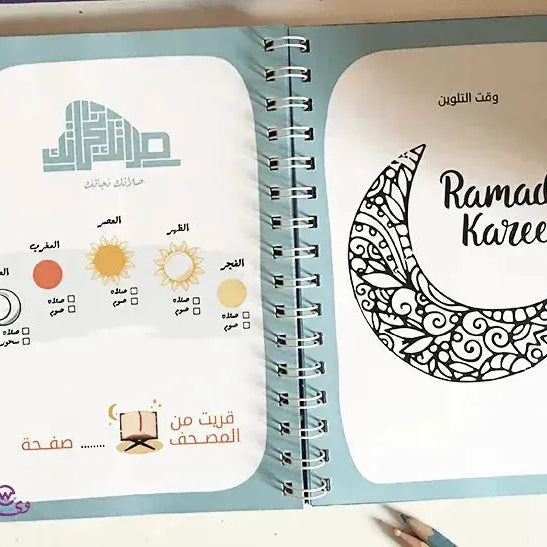 صلاتك نجاتك
صلاتك نجاتك
الفجر
☐ صلاة
☐ صوم
الظهر
☐ صلاة
☐ صوم
العصر
☐ صلاة
☐ صوم
المغرب
☐ صلاة
☐ صوم
☐ صلاة
☐ سحور
قريت من
المصحف ........ صفحة
وقت التلوين
Ramad
Karee